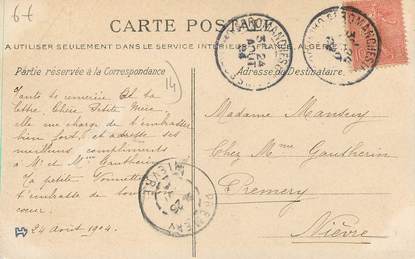 6f
CARTE POSTALE
A UTILISER SEULEMENT DANS LE SERVICE INTÉRIEUR FRANCE, ALGÉRIE
Partie réservée à la Correspondance
Adresse du Destinataire
14
Tante te remercie de ta
lettre Chère Petite Mère,
elle me charge de t'embrasser
bien fort, et adresse ses
meilleurs compliments
à Mr et Mme Gautherin
Ta petite
t'embrasse de tout
coeur.
24 août 1904.
Madame Mantey
Chez Mme Gautherin
Premery
Nièvre
ROMANCHES
24
04
ROMANCHES
PREMERY
25
NIÈVRE